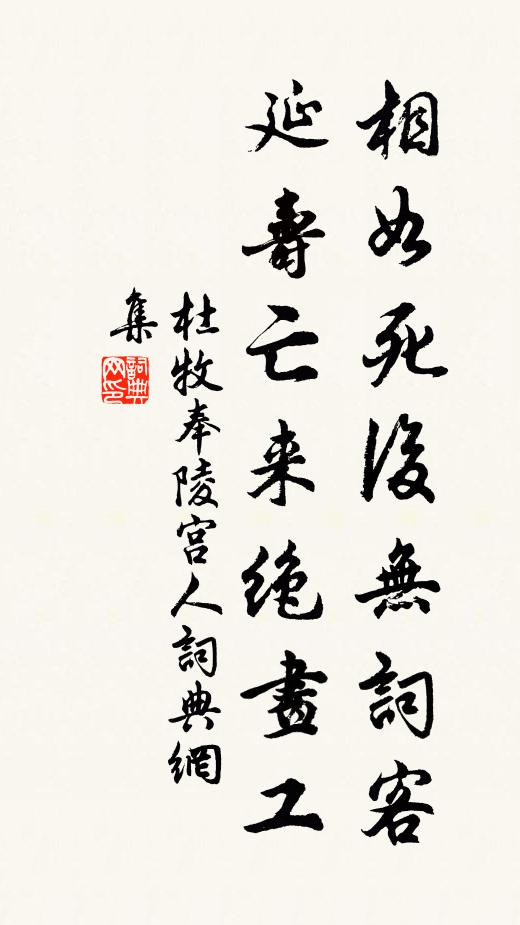 相如死後無詞客
延壽亡来绝畫工
杜牧奉陵宫人詞典網
集
詞典网印